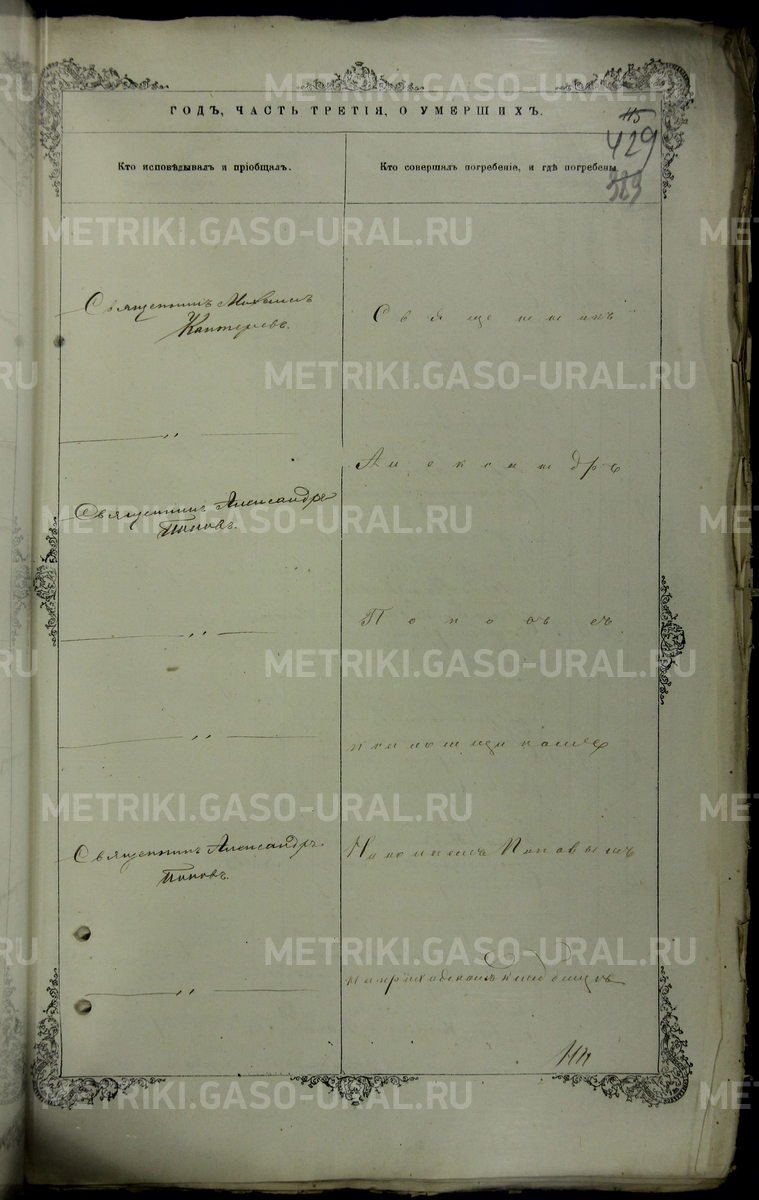 ГОДЪ, ЧАСТЬ ТРЕТІЯ, О УМЕРШИХЪ.
115
429
323
Кто исповѣдывалъ и пріобщалъ.
Кто совершалъ погребеніе, и гдѣ погребены
Священникъ Михаилъ
Каптеревъ.
〃
Священникъ Александръ
Поповъ.
〃
〃
Священникъ Александръ
Поповъ.
〃
Священникъ
Александръ
Поповъ съ
Николаемъ Поповымъ
на приходскомъ кладбищѣ
METRIKI.GASO-URAL.RU